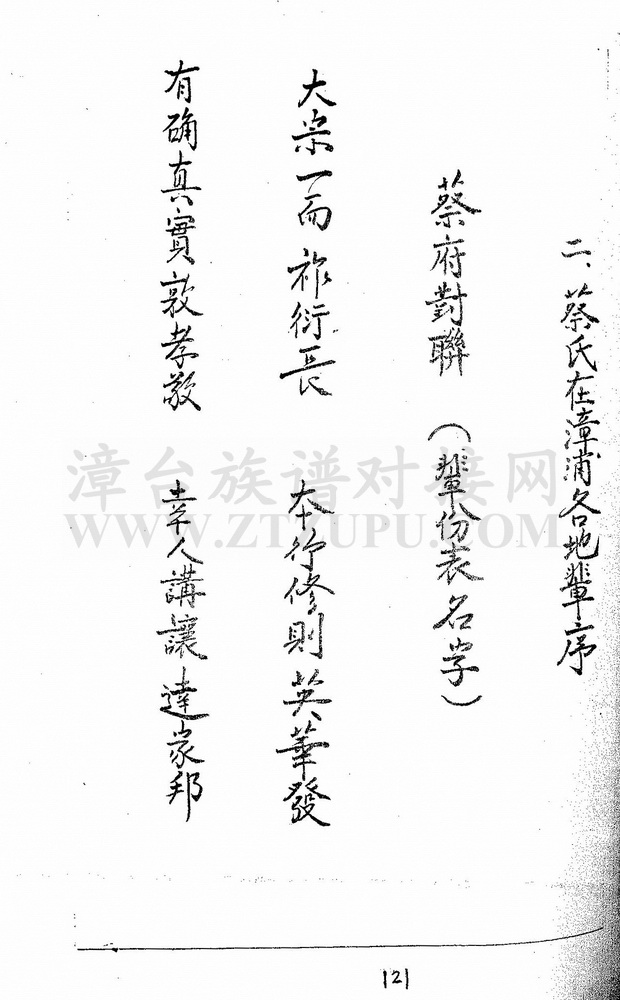 二、蔡氏在漳浦各地輩序
蔡府對聯 (輩份表名字)
大宗一而祚衍長 本行修則英華發
有确真實敦孝敬 人講讓達家邦
121
漳台族谱对接网
WWW.ZTZUPU.COM